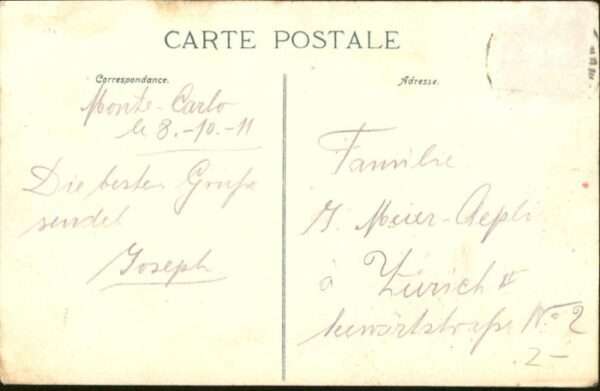 CARTE POSTALE
Correspondance.
Monte-Carlo
le 8.-10.-11
Die besten Grüße
sendet
Joseph
Adresse.
Familie
J. Meier-Aepli
à Zürich II
Seewartstrasse No 2